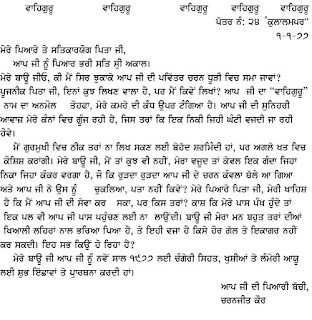 ਵਾਹਿਗੁਰੂ ਵਾਹਿਗੁਰੂ ਵਾਹਿਗੁਰੂ ਵਾਹਿਗੁਰੂ ਵਾਹਿਗੁਰੂ
ਪੱਤਰ ਨੰ: ੨੪ "ਕੁਲਾਲਮਪਰ"
੧-੧-੭੭
ਮੇਰੇ ਪਿਆਰੇ ਤੇ ਸਤਿਕਾਰਯੋਗ ਪਿਤਾ ਜੀ,
ਆਪ ਜੀ ਨੂੰ ਪਿਆਰ ਭਰੀ ਸਤਿ ਸ੍ਰੀ ਅਕਾਲ।
ਮੇਰੇ ਬਾਊ ਜੀਓ, ਕੀ ਮੈਂ ਸਿਰ ਝੁਕਾਕੇ ਆਪ ਜੀ ਦੀ ਪਵਿੱਤਰ ਚਰਨ ਧੂੜੀ ਵਿਚ ਸਮਾ ਜਾਵਾਂ?
ਪੂਜਨੀਕ ਪਿਤਾ ਜੀ, ਇਨਾਂ ਕੁਝ ਲਿਖਣ ਵਾਲਾ ਹੈ, ਪਰ ਮੈਂ ਕਿਵੇਂ ਲਿਖਾਂ? ਆਪ ਜੀ ਦਾ "ਵਾਹਿਗੁਰੂ"
ਨਾਮ ਦਾ ਅਨਮੋਲ ਤੋਹਫਾ, ਮੇਰੇ ਕਮਰੇ ਦੀ ਕੰਧ ਉਪਰ ਟੰਗਿਆ ਹੈ। ਆਪ ਜੀ ਦੀ ਸੁਨਿਹਰੀ
ਆਵਾਜ਼ ਮੇਰੇ ਕੰਨਾਂ ਵਿਚ ਗੂੰਜ ਰਹੀ ਹੈ, ਜਿਸ ਤਰਾਂ ਕਿ ਇਕ ਨਿਕੀ ਜਿਹੀ ਘੰਟੀ ਵਜਦੀ ਜਾ ਰਹੀ
ਹੋਵੇ।
ਮੈਂ ਗੁਰਮੁਖੀ ਵਿਚ ਠੀਕ ਤਰਾਂ ਨਾ ਲਿਖ ਸਕਣ ਲਈ ਬੇਹੱਦ ਸ਼ਰਮਿੰਦੀ ਹਾਂ, ਪਰ ਅਗਲੇ ਖਤ ਵਿਚ
ਕੋਸ਼ਿਸ਼ ਕਰਾਂਗੀ। ਮੇਰੇ ਬਾਊ ਜੀ, ਮੈਂ ਤਾਂ ਕੁਝ ਵੀ ਨਹੀਂ, ਮੇਰਾ ਵਜੂਦ ਤਾਂ ਕੇਵਲ ਇਕ ਗੰਦਾ ਜਿਹਾ
ਨਿਕਾ ਜਿਹਾ ਕੰਕਰ ਵਰਗਾ ਹੈ, ਜੋ ਕਿ ਰੁੜਦਾ ਰੁੜਦਾ ਆਪ ਜੀ ਦੇ ਚਰਨ ਕੰਵਲਾ ਥੱਲੇ ਆ ਗਿਆ
ਅਤੇ ਆਪ ਜੀ ਨੇ ਉਸ ਨੂੰ ਚੁਕਲਿਆ, ਪਤਾ ਨਹੀਂ ਕਿਵੇਂ? ਮੇਰੇ ਪਿਆਰੇ ਪਿਤਾ ਜੀ, ਮੇਰੀ ਖਾਹਿਸ਼
ਹੈ ਕਿ ਮੈਂ ਆਪ ਜੀ ਦੀ ਸੇਵਾ ਕਰ ਸਕਾ, ਪਰ ਕਿਸ ਤਰਾਂ? ਕਾਸ਼ ਕਿ ਮੇਰੇ ਪਾਸ ਪੰਖ ਹੁੰਦੇ ਤਾਂ
ਇਕ ਪਲ ਵੀ ਆਪ ਜੀ ਪਾਸ ਪਹੁੰਚਣ ਲਈ ਨਾ ਲਾਉਂਦੀ। ਬਾਊ ਜੀ ਮੇਰਾ ਮਨ ਬਹੁਤ ਤਰਾਂ ਦੀਆਂ
ਖਿਆਲੀ ਲਹਿਰਾਂ ਨਾਲ ਭਰਿਆ ਪਿਆ ਹੈ, ਤੇ ਇਹੀ ਵਜਾ ਹੈ ਕਿਸੇ ਹੋਰ ਗੱਲ ਤੇ ਇਕਾਗਰ ਨਹੀਂ
ਕਰ ਸਕਦੀ। ਇਹ ਸਭ ਕਿਉਂ ਹੋ ਰਿਹਾ ਹੈ?
ਮੇਰੇ ਬਾਊ ਜੀ ਆਪ ਜੀ ਨੂੰ ਨਵੇਂ ਸਾਲ ੧੯੭੭ ਲਈ ਚੰਗੇਰੀ ਸਿਹਤ, ਖੁਸ਼ੀਆਂ ਤੇ ਲੰਮੇਰੀ ਆਯੂ
ਲਈ ਸ਼ੁਭ ਇੱਛਾਵਾਂ ਤੇ ਪ੍ਰਾਰਥਨਾ ਕਰਦੀ ਹਾਂ।
ਆਪ ਜੀ ਦੀ ਪਿਆਰੀ ਬੱਚੀ,
ਚਰਨਜੀਤ ਕੌਰ